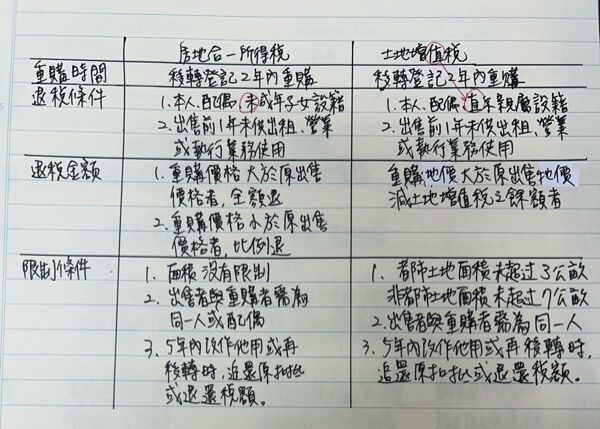 房地合一所得稅 土地增值稅
重購時間 移轉登記2年內重購 移轉登記2年內重購
退稅條件 1.本人、配偶、未成年子女設籍 1.本人、配偶、直年親屬設籍
2.出售前1年未供出租、營業 2.出售前1年未供出租、營業
或執行業務使用 或執行業務使用
退稅金額 1.重購價格大於原出售 重購地價大於原出售地價
價格者,全額退 減土地增值稅之餘額者
2.重購價格小於原出售
價格者,比例退
限制條件 1.面積沒有限制 1.都市土地面積未超過3公畝
2.出售者與重購者需為 非都市土地面積未超過7公畝
同一人或配偶 2.出售者與重購者需為同一人
3.5年內改作他用或再 3.5年內改作他用或再移轉時,
移轉時,追還原扣抵 追還原扣抵或退還稅額。
或退還稅額。